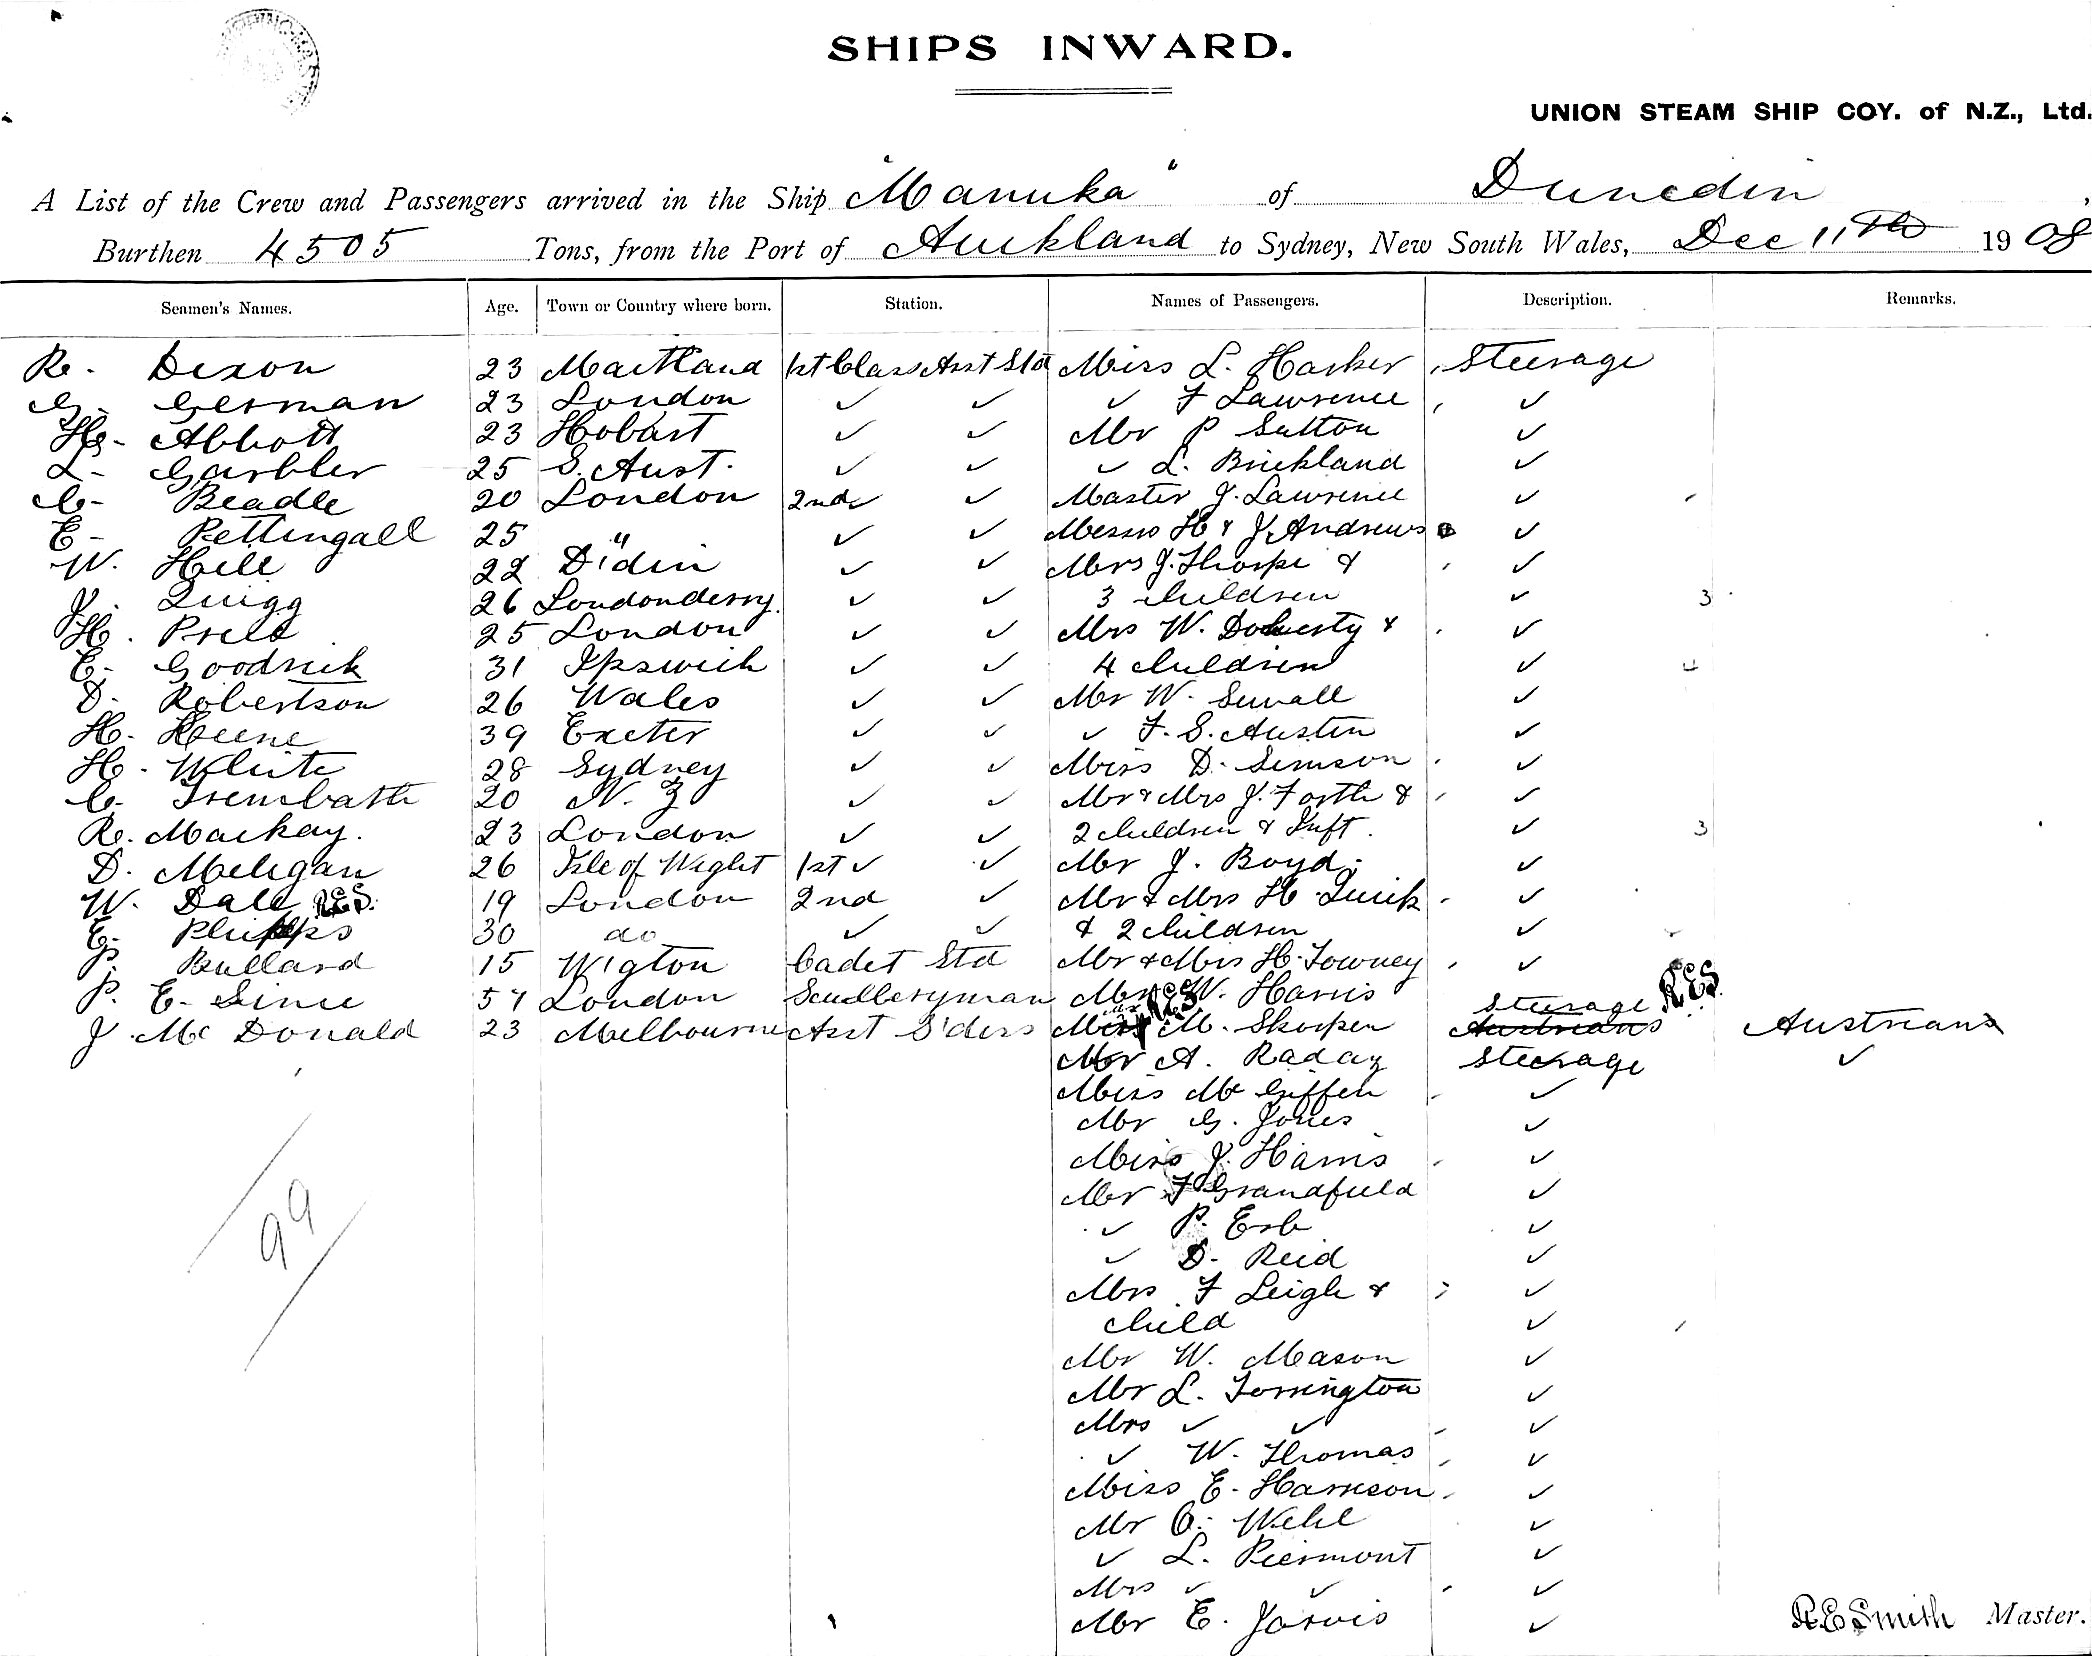 SHIPS INWARD.
UNION STEAM SHIP COY. of N.Z., Ltd.
A List of the Crew and Passengers arrived in the Ship "Manuka" of Dunedin,
Burthen 4505 Tons, from the Port of Auckland to Sydney, New South Wales, Dec 11th 1908
Seamen's Names. Age. Town or Country where born. Station. Names of Passengers. Description. Remarks.
R. Dixon 23 Maitland 1st Class Asst Std Miss L. Harker Steerage
G. German 23 London ✓ ✓ ✓ F Lawrence ✓
H. Abbott 23 Hobart ✓ ✓ Mr P Sutton ✓
L. Garbler 25 S. Aust. ✓ ✓ ✓ L. Brickland ✓
C. Beadle 20 London 2nd ✓ Master J. Lawrence ✓
E. Pettingall 25 " ✓ ✓ Messrs H & J. Andrews ✓
W. Hill 22 D'din ✓ ✓ Mrs J. Thorpe & ✓
J. Quigg 26 Londonderry. ✓ ✓ 3 children ✓ 3
H. Price 25 London ✓ ✓ Mrs W. Doherty & ✓
E. Goodrick 31 Ipswich ✓ ✓ 4 children ✓ 4
D. Robertson 26 Wales ✓ ✓ Mr W. Sewall ✓
H. Heene 39 Exeter ✓ ✓ ✓ F. S. Austin ✓
H. White 28 Sydney ✓ ✓ Miss D. Simson ✓
C. Trembath 20 N. Z ✓ ✓ Mr & Mrs J. Forth & ✓
R. Mackay. 23 London ✓ ✓ 2 children & Inft. ✓ 3
D. Milligan 26 Isle of Wight 1st ✓ ✓ Mr J. Boyd. ✓
W. Dall R.E.S. 19 London 2nd ✓ Mr & Mrs H. Quick ✓
E. Phipps 30 do ✓ ✓ & 2 children ✓
J. Bullard 15 Wigton Cadet Std Mr & Mrs H. Towney ✓
P. E. Sime 57 London Sculleryman Mr W. Harris Steerage R.E.S.
J. McDonald 23 Melbourne Asst S'ders M. Skorpen Austrians Austrians
Mr A. Raday Steerage ✓
Miss McGiffen ✓
Mr G. Jones ✓
Miss J. Harris ✓
Mr F Grandfield ✓
✓ P. Erb ✓
✓ D. Reid ✓
Mrs F Leigh & ✓
child ✓
Mr W. Mason ✓
Mr L. Torrington ✓
Mrs ✓ ✓ ✓
✓ W. Thomas ✓
Miss E. Harrison ✓
Mr C. Wehl ✓
✓ L. Piermont ✓
Mrs ✓ ✓ ✓
Mr E. Jarvis ✓
99
R.E Smith Master.